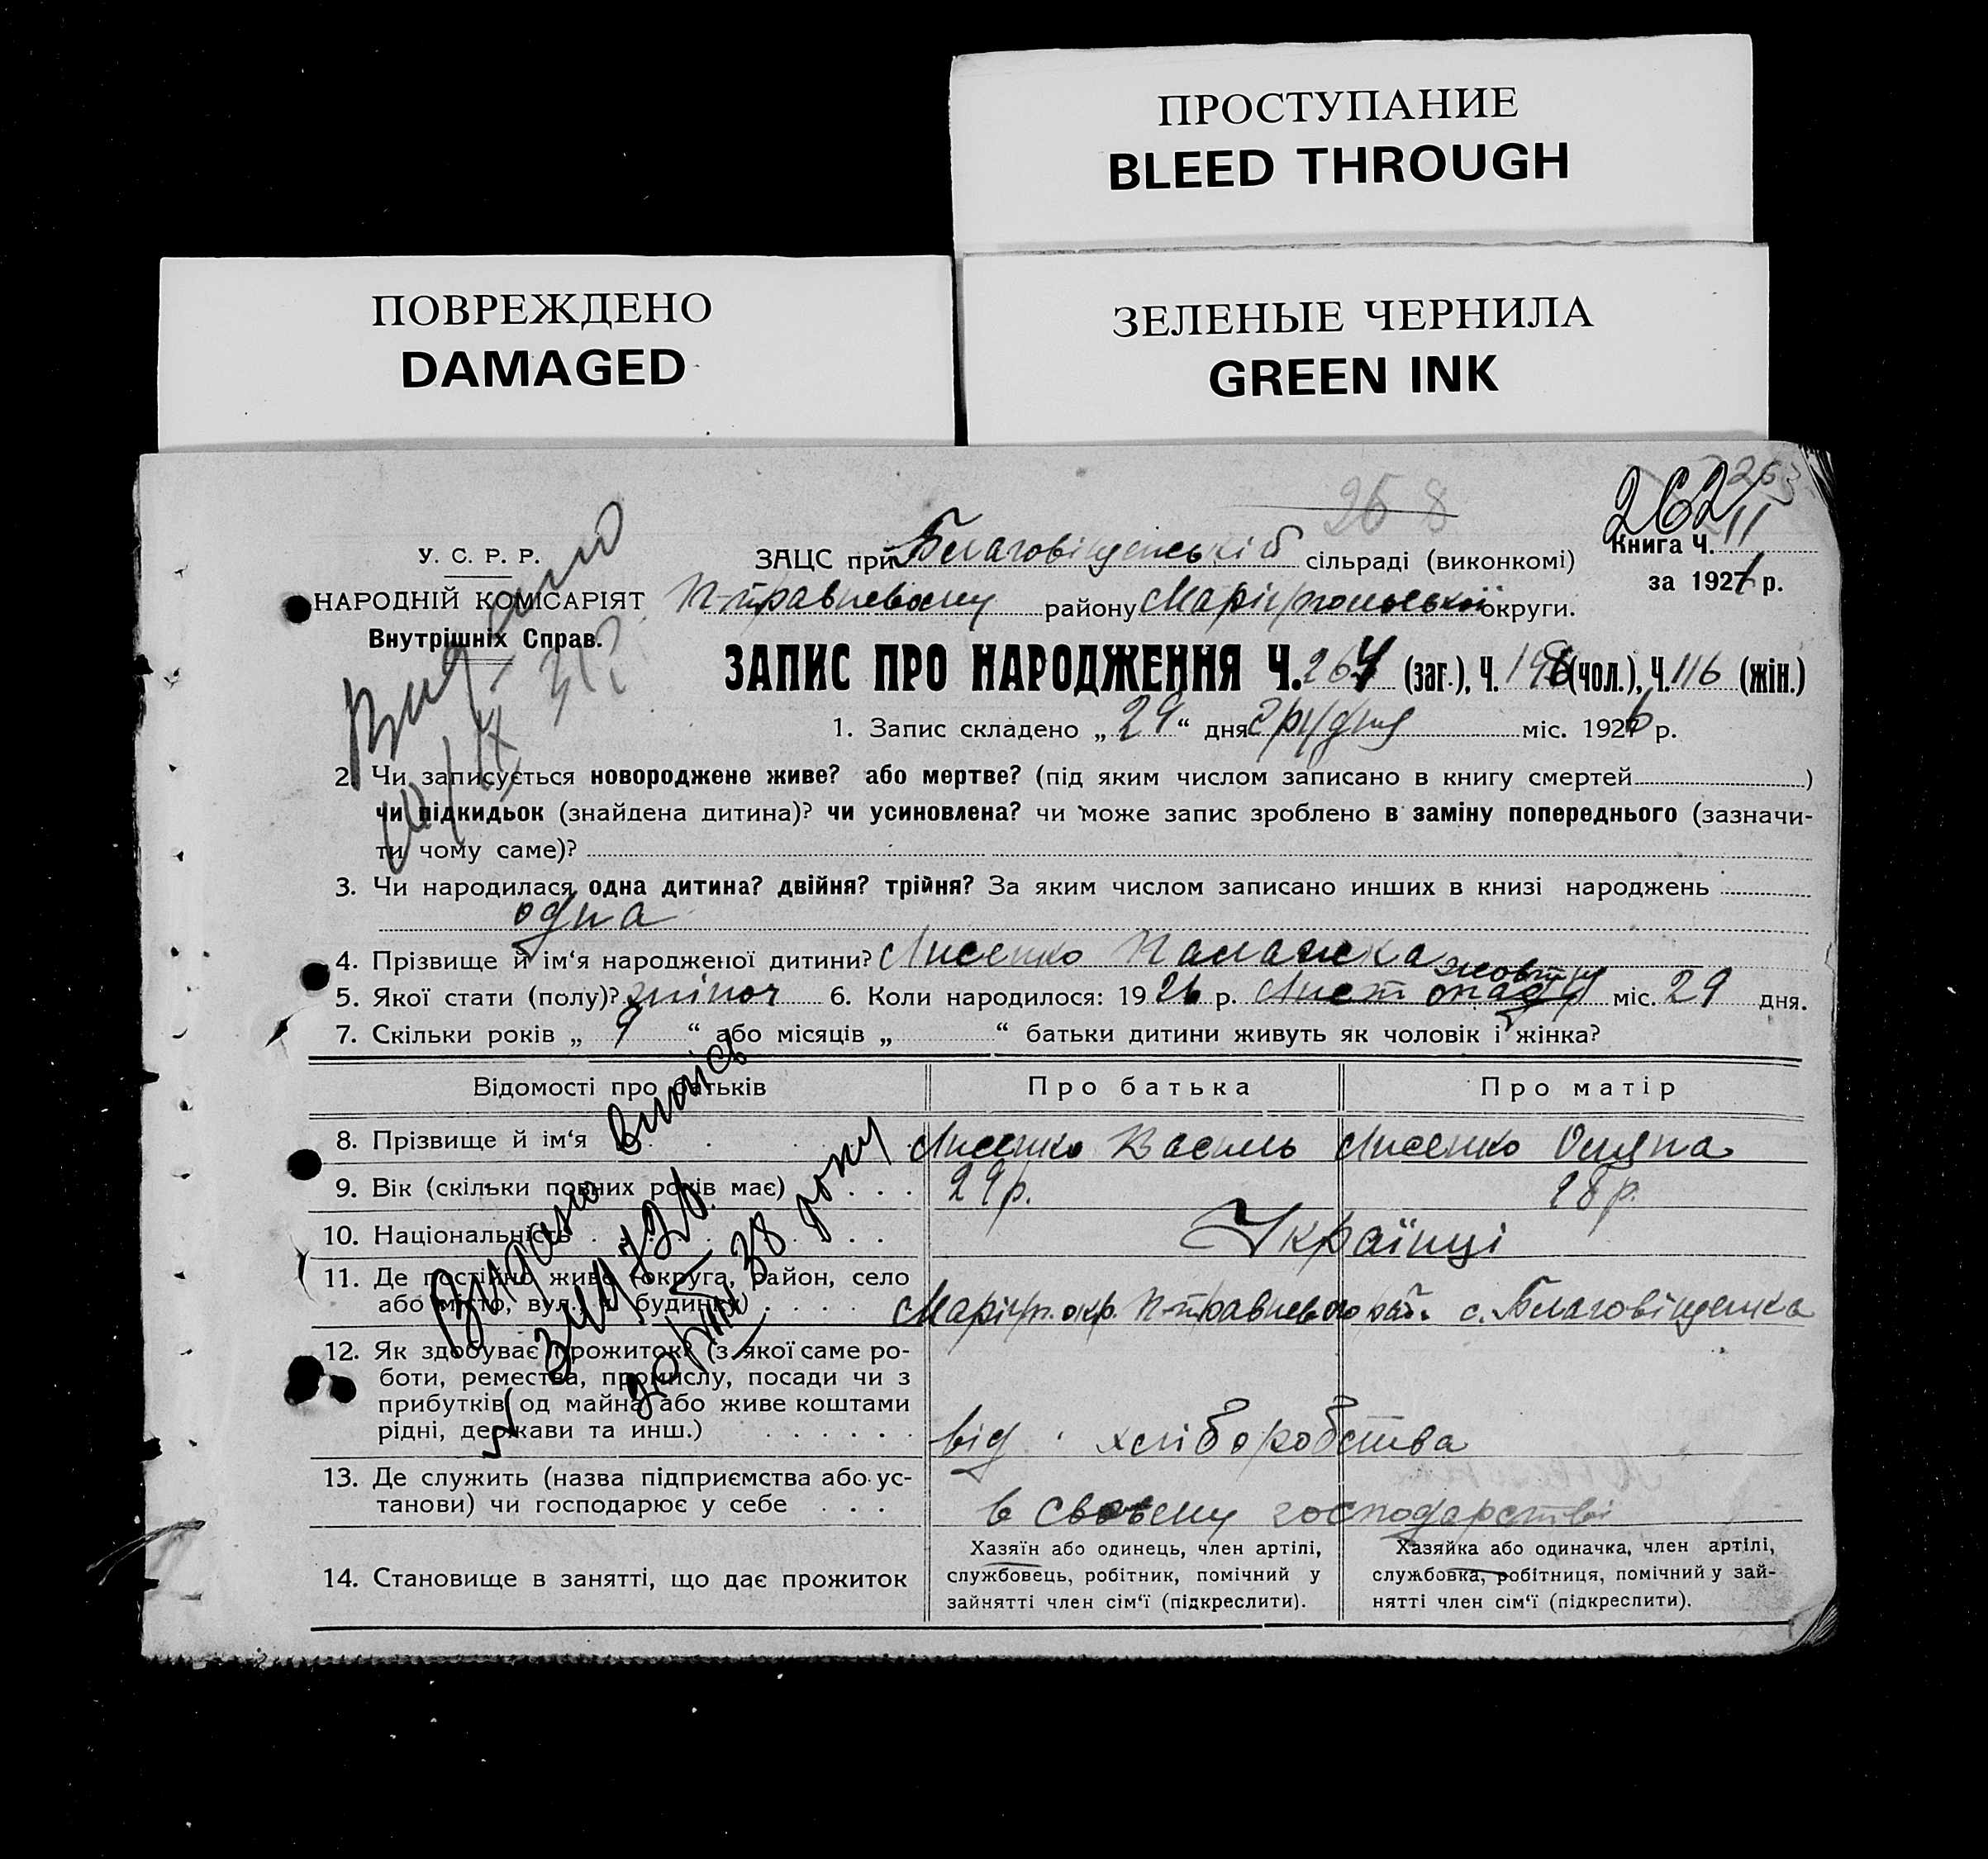 ПРОСТУПАНИЕ
BLEED THROUGH
ПОВРЕЖДЕНО
DAMAGED
ЗЕЛЕНЫЕ ЧЕРНИЛА
GREEN INK
263
258
262
У. С. Р. Р.
НАРОДНІЙ КОМІСАРІЯТ
Внутрішніх Справ.
ЗАЦС при Благовіщенській сільраді (виконкомі)
Книга Ч. II
за 1927 р.
району Маріупольської округи.
ЗАПИС ПРО НАРОДЖЕННЯ Ч. 264 (заг.), Ч. (чол.), Ч. 116 (жін.)
1. Запис складено „ 29 “ дня Грудня міс. 1926 р.
2. Чи записується новороджене живе? або мертве? (під яким числом записано в книгу смертей )
чи підкидьок (знайдена дитина)? чи усиновлена? чи може запис зроблено в заміну попереднього (зазначи-
ти чому саме)?
3. Чи народилася одна дитина? двійня? трійня? За яким числом записано инших в книзі народжень
одна
4. Прізвище й ім‘я народженої дитини? Лисенко Палажка
жовтня
5. Якої стати (полу)? жіноч 6. Коли народилося: 1926 р. Листопада міс. 29 дня.
7. Скільки років „ 9 “ або місяців „ “ батьки дитини живуть як чоловік і жінка?
Відомості про батьків Про батька Про матір
8. Прізвище й ім‘я Лисенко Василь Лисенко
9. Вік (скільки повних років має) 29 р. 28 р.
10. Національність Українці
11. Де постійно живе (округа, район, село
або місто, вул., ч. будинку) Маріуп. окр. с. Благовіщенка
12. Як здобуває прожиток? (з якої саме ро-
боти, ремества, промислу, посади чи з
прибутків од майна або живе коштами
рідні, держави та инш.) від хліборобства
13. Де служить (назва підприємства або ус-
танови) чи господарює у себе в своєму господарстві
14. Становище в занятті, що дає прожиток
Хазяїн або одинець, член артілі,
службовець, робітник, помічний у
зайнятті член сім‘ї (підкреслити).
Хазяйка або одиначка, член артілі,
службовка, робітниця, помічний у зай-
нятті член сім‘ї (підкреслити).
Видано
Видано Виписъ
38 року